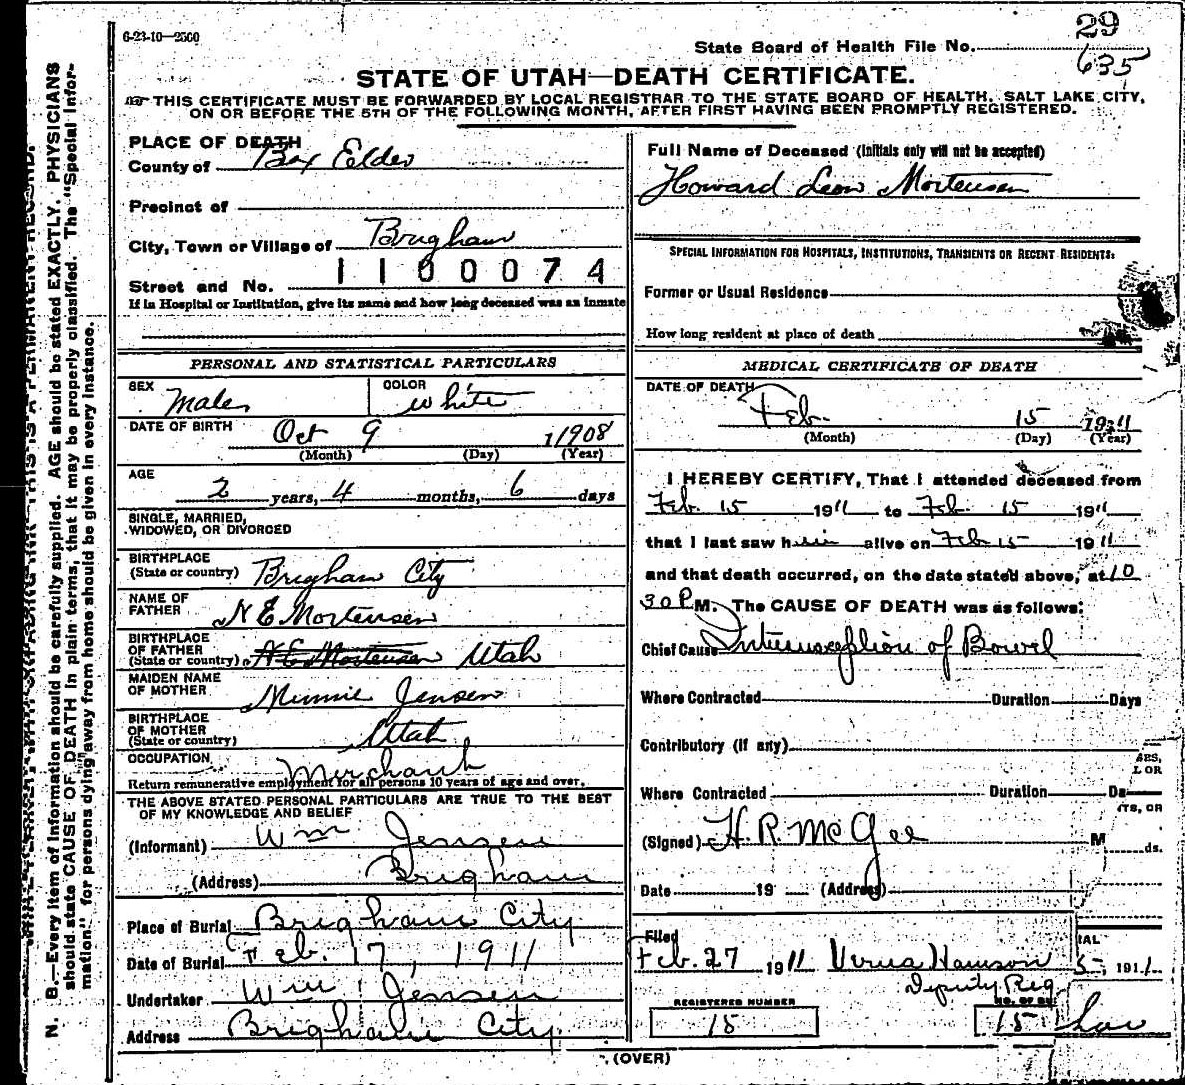 6-23-10—2500
29
State Board of Health File No.
635
STATE OF UTAH—DEATH CERTIFICATE.
THIS CERTIFICATE MUST BE FORWARDED BY LOCAL REGISTRAR TO THE STATE BOARD OF HEALTH, SALT LAKE CITY,
ON OR BEFORE THE 5TH OF THE FOLLOWING MONTH, AFTER FIRST HAVING BEEN PROMPTLY REGISTERED.
PLACE OF DEATH
County of Box Elder
Precinct of
City, Town or Village of Brigham
1100074
Street and No.
If in Hospital or Institution, give its name and how long deceased was an inmate
PERSONAL AND STATISTICAL PARTICULARS
SEX Male COLOR White
DATE OF BIRTH Oct 9 1908
(Month) (Day) (Year)
AGE
2 years, 4 months, 6 days
SINGLE, MARRIED,
WIDOWED, OR DIVORCED
BIRTHPLACE
(State or country) Brigham City
NAME OF
FATHER N E Mortensen
BIRTHPLACE
OF FATHER
(State or country) N E Mortensen Utah
MAIDEN NAME
OF MOTHER Minnie Jensen
BIRTHPLACE
OF MOTHER
(State or country) Utah
OCCUPATION Merchant
Return remunerative employment for all persons 10 years of age and over.
THE ABOVE STATED PERSONAL PARTICULARS ARE TRUE TO THE BEST
OF MY KNOWLEDGE AND BELIEF
(Informant) Wm Jensen
(Address) Brigham
Place of Burial Brigham City
Date of Burial Feb. 17, 1911
Undertaker Wm Jensen
Address Brigham City
Full Name of Deceased (Initials only will not be accepted)
Howard Leon Mortensen
SPECIAL INFORMATION FOR HOSPITALS, INSTITUTIONS, TRANSIENTS OR RECENT RESIDENTS:
Former or Usual Residence
How long resident at place of death
MEDICAL CERTIFICATE OF DEATH
DATE OF DEATH
Feb. 15 1911
(Month) (Day) (Year)
I HEREBY CERTIFY, That I attended deceased from
Feb. 15 1911 to Feb. 15 1911
that I last saw him alive on Feb 15 1911
and that death occurred, on the date stated above, at 10
30 P M. The CAUSE OF DEATH was as follows:
Chief Cause Intussception of Bowel
Where Contracted Duration Days
Contributory (if any)
Where Contracted Duration Da
(Signed) H. R. McGee M
ds.
Date 19 (Address)
Filed
Feb. 27 1911 Verna Hanson
Deputy Reg
5, 1911
REGISTERED NUMBER
15
15
(OVER)
N. B.—Every item of information should be carefully supplied. AGE should be stated EXACTLY. PHYSICIANS
should state CAUSE OF DEATH in plain terms, that it may be properly classified. The "Special Infor-
mation" for persons dying away from home should be given in every instance.